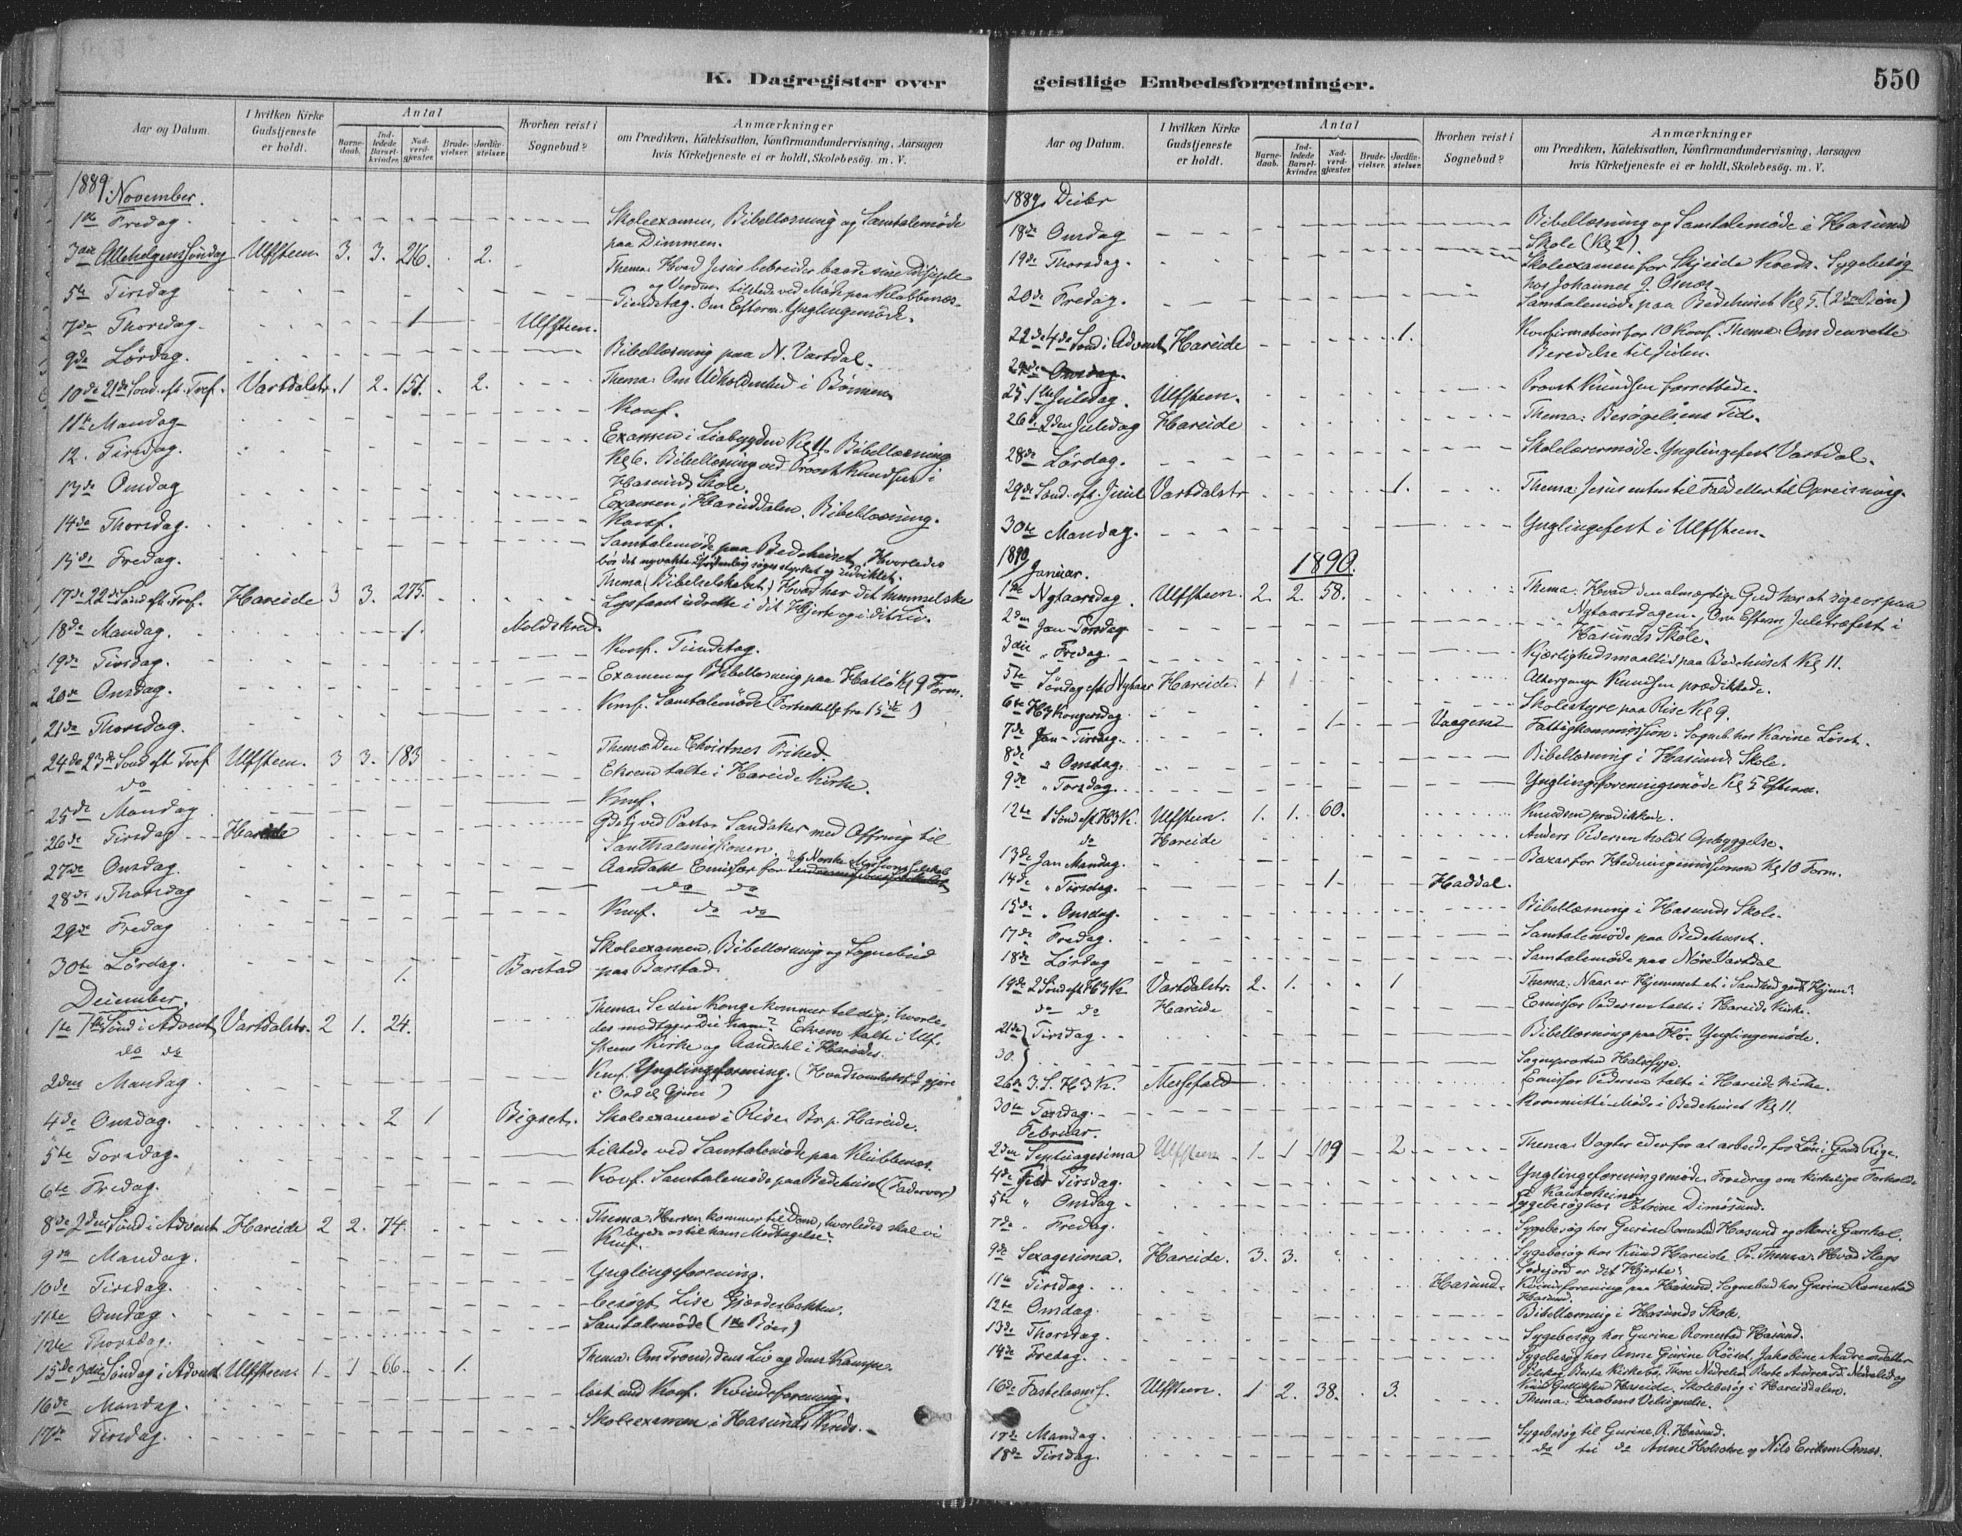 K. Dagregister over
Aar og Datum.
I hvilken Kirke Gudstjeneste er holdt.
Antal
Barnedaab.
Indledede Barselkvinder.
Nadverdgjester.
Brudevielser.
Jordfæstelser.
Hvorhen reist i Sognebud?
Anmærkninger
om Prædiken, Katekisation, Konfirmandundervisning, Aarsagen
hvis Kirketjeneste ei er holdt, Skolebesög. m. V.
1889. November.
1ste Fredag. Skoleexamen, Bibellæsning og Samtalemøde
paa Dimmen.
3die Allehelgens Søndag Ulfsteen. 3. 3. 216. 2. Thema: Hvad Jesus bebreider baade sine Disciple
og Verden. tilstede ved Møde paa Klubbenæs.
5te Tirsdag Tiendetag. Om Efterm. Ynglingemøde.
7de Thorsdag. 1 Ulfsteen.
9de Lørdag. Bibellæsning paa N. Vartdal.
10de 21de Sønd. eft. Tref. Vartdalstr. 1 2. 151. 2. Thema: Om Udholdenhed i Bønnen.
11te Mandag Konf.
12. Tirsdag. Examen i Liabygden Kl 11. Bibellæsning
Kl 6. Bibellæsning ved Provst Knudsen i
13de Onsdag Hasunds Skole.
Examen i Hareiddalen. Bibellæsning.
14de Thorsdag. Konf.
15de Fredag. Samtalemøde paa Bedehuset. Hvorledes
bør det nyvakte søges styrket og udviklet.
17de 22de Sønd. eft. Tref. Hareide 3 3. 275. Thema (Bibelselskabet) Hvad har det himmelske
Lys faaet udrette i dit Hjerte og i dit Liv.
18de Mandag. 1. Moldskred.
19de Tirsdag. Konf. Tiendetag.
20de Onsdag. Examen og Bibellæsning paa Hatlø Kl 9 Form.
21de Thorsdag. Konf. Samtalemøde (Fortsættelse fra 15de)
24de 23de Sønd eft. Tref Ulfsteen. 3 3. 183 Thema: Den Christnes Frihed.
do Ekrem talte i Hareide Kirke.
25de Mandag Konf.
26de Tirsdag Hareide Gdstj ved Pastor Sandaker med Offring til
Santhalmissionen.
27de Onsdag. Aandahl Emissær for det Norske Missionsselskab
28de Thorsdag do do
29de Fredag Konf. do do
30te Lørdag. 1. Barstad Skoleexamen, Bibellæsning og Sognebud
paa Barstad.
December.
1ste 1ste Sønd i Advent Vartdalstr. 2 1. 24. Thema: Se din Konge kommer til dig; hvorledes
modtager Du ham? Ekrem talte i Ulfsteens
do do Kirke og Aandahl i Hareides.
2den Mandag Konf. Ynglingeforening. (Hvadsomhelst I gjøre
i Ord el. Gjern.)
4de Onsdag. 2 1 Bigset. Skoleexamen i Rise. Br. p. Hareide.
5te Torsdag. tilstede ved Samtalemøde paa Klubbenæs.
6te Fredag. Konf. Samtalemøde paa Bedehuset (Fadervor)
8de 2den Sønd i Advent Hareide 2 2. 74. Thema: Herren kommer til Dom, hvorledes skal vi
berede os til hans Modtagelse?
9de Mandag. Konf.
10de Tirsdag. Ynglingeforening.
11te Onsdag. besøgt Lise Gjærdesbakken.
12te Thorsdag. Samtalemøde (1ste Bøn)
15de 3die Søndag i Advent Ulfsteen 1. 1 66. 1. Thema: Om Troen, dens Liv og dens Kampe.
16de Mandag. læst med Konf. Kvindeforening.
17de Tirsdag. Skoleexamen i Hasunds Kreds.
geistlige Embedsforretninger.
550
Aar og Datum.
I hvilken Kirke Gudstjeneste er holdt.
Antal
Barnedaab.
Indledede Barselkvinder.
Nadverdgjester.
Brudevielser.
Jordfæstelser.
Hvorhen reist i Sognebud?
Anmærkninger
om Prædiken, Katekisation, Konfirmandundervisning, Aarsagen
hvis Kirketjeneste ei er holdt, Skolebesög. m. V.
1889 Decbr
18de Onsdag Bibellæsning og Samtalemøde i Hasund
Skole (Kl 2).
19de Thorsdag. Skoleexamen for Skjeide Kreds. Sygebesøg
hos Johannes J. Osnæs.
20de Fredag. Samtalemøde paa Bedehuset Kl 5. (2den Bøn)
22de 4de Sønd i Advent Hareide 1. Konfirmation for 10 Konf. Thema: Om den rette
Beredelse til Julen.
24de Onsdag.
25. 1ste Juledag. Ulfsteen. Provst Knudsen forrettede.
26de 2den Juledag Hareide Thema: Besøgelsens Tid.
28de Lørdag. Skolelærermøde. Ynglingefest Vartdal.
29de Sønd. eft. Juul Vartdalstr 1. Thema: Jesus enten til Fald eller til Opreisning.
30te Mandag. Ynglingefest i Ulfsteen.
1890 Januar. 1890.
1ste Nytaarsdag. Ulfsteen 2. 2. 58. Thema: Hvad den almægtige Gud har at sige os paa
Nytaarsdagen. Om Efterm Juletræfest i
2den Jan Torsdag Hasunds Skole.
3die " Fredag. Kjærlighedsmaaltid paa Bedehuset Kl 11.
5te Søndag eft Nytaar Hareide. 1 1 Altergang. Knudsen prædikede.
6te H3Kongersdag. Skolestyre paa Rise Kl 9.
7de Jan Tirsdag. 1 Vaagenes Fattigkommission. Sogneb. hos Karine Løset.
8de " Onsdag. Bibellæsning i Hasunds Skole.
9de " Torsdag. Ynglingeforeningsmøde Kl 5 Efterm.
12te 1 Sønd eft H3K. Ulfsteen. 1. 1. 60. Knudsen prædikede.
do Hareide Anders Pedersen holdt Opbyggelse.
13de Jan Mandag. Bazar for Hedningemissionen Kl 10 Form.
14de " Tirsdag. 1 Haddal.
15de " Onsdag. Bibellæsning i Hasunds Skole.
17de " Fredag. Samtalemøde paa Bedehuset.
18de Lørdag Samtalemøde paa Nøre Vartdal
19de 2 Sønd eft H3K Vartdalstr. 2. 1. 1 Thema: Naar er Hjemmet et i Sandhed godt Hjem?
do do Hareide Emissær Pedersen talte i Hareide Kirke.
21de Tirsdag Bibellæsning paa Flø. Ynglingemøde.
30. Sognepresten Halssyge.
26de 3. S. H3K. Messefald Emissær Pedersen talte i Hareide Kirke.
30te Torsdag. Kommitté-Møde i Bedehuset Kl 11.
Februar.
2den Septuagesima Ulfsteen 1. 1 109 2 Thema: Vogter eder for at arbeide for Løn i Guds Rige.
4de Febr Tirsdag. Ynglingeforeningsmøde. Foredrag om kirkelige Forholde
i Kautokeino
5te " Onsdag Sygebesøg hos Petrine Dimøsund.
7de " Fredag. Sygebesøg hos Gurine Romestad Hasund og Marie Garshol.
9de Sexagesima. Hareide. 3. 3. Sygebesøg hos Knud Hareide. Pr. Thema: Hvad Slags
Sædejord er det Hjerte?
11te Tirsdag. Hasund. Kvindeforening paa Hasund. Sognebud hos Gurine Romestad
Hasund.
12te Onsdag. Bibellæsning i Hasunds Skole.
13de Thorsdag. Sygebesøg hos Gurine Romestad Hasund.
14de Fredag. Sygebesøg hos Anne Gurine Røiset, Jakobine Andreasdatter
16de Fastelavnss. Ulfsteen. 1 2. 38. 3. Knud Guttormsen Hareide. Skolebesøg i Hareiddalen.
Thema: Daabens Velsignelse.
17de Mandag. Sygebesøg til Gurine R. Hasund.
18de Tirsdag. do til do Anne Holstre og Nils Eriksen Osnæs.